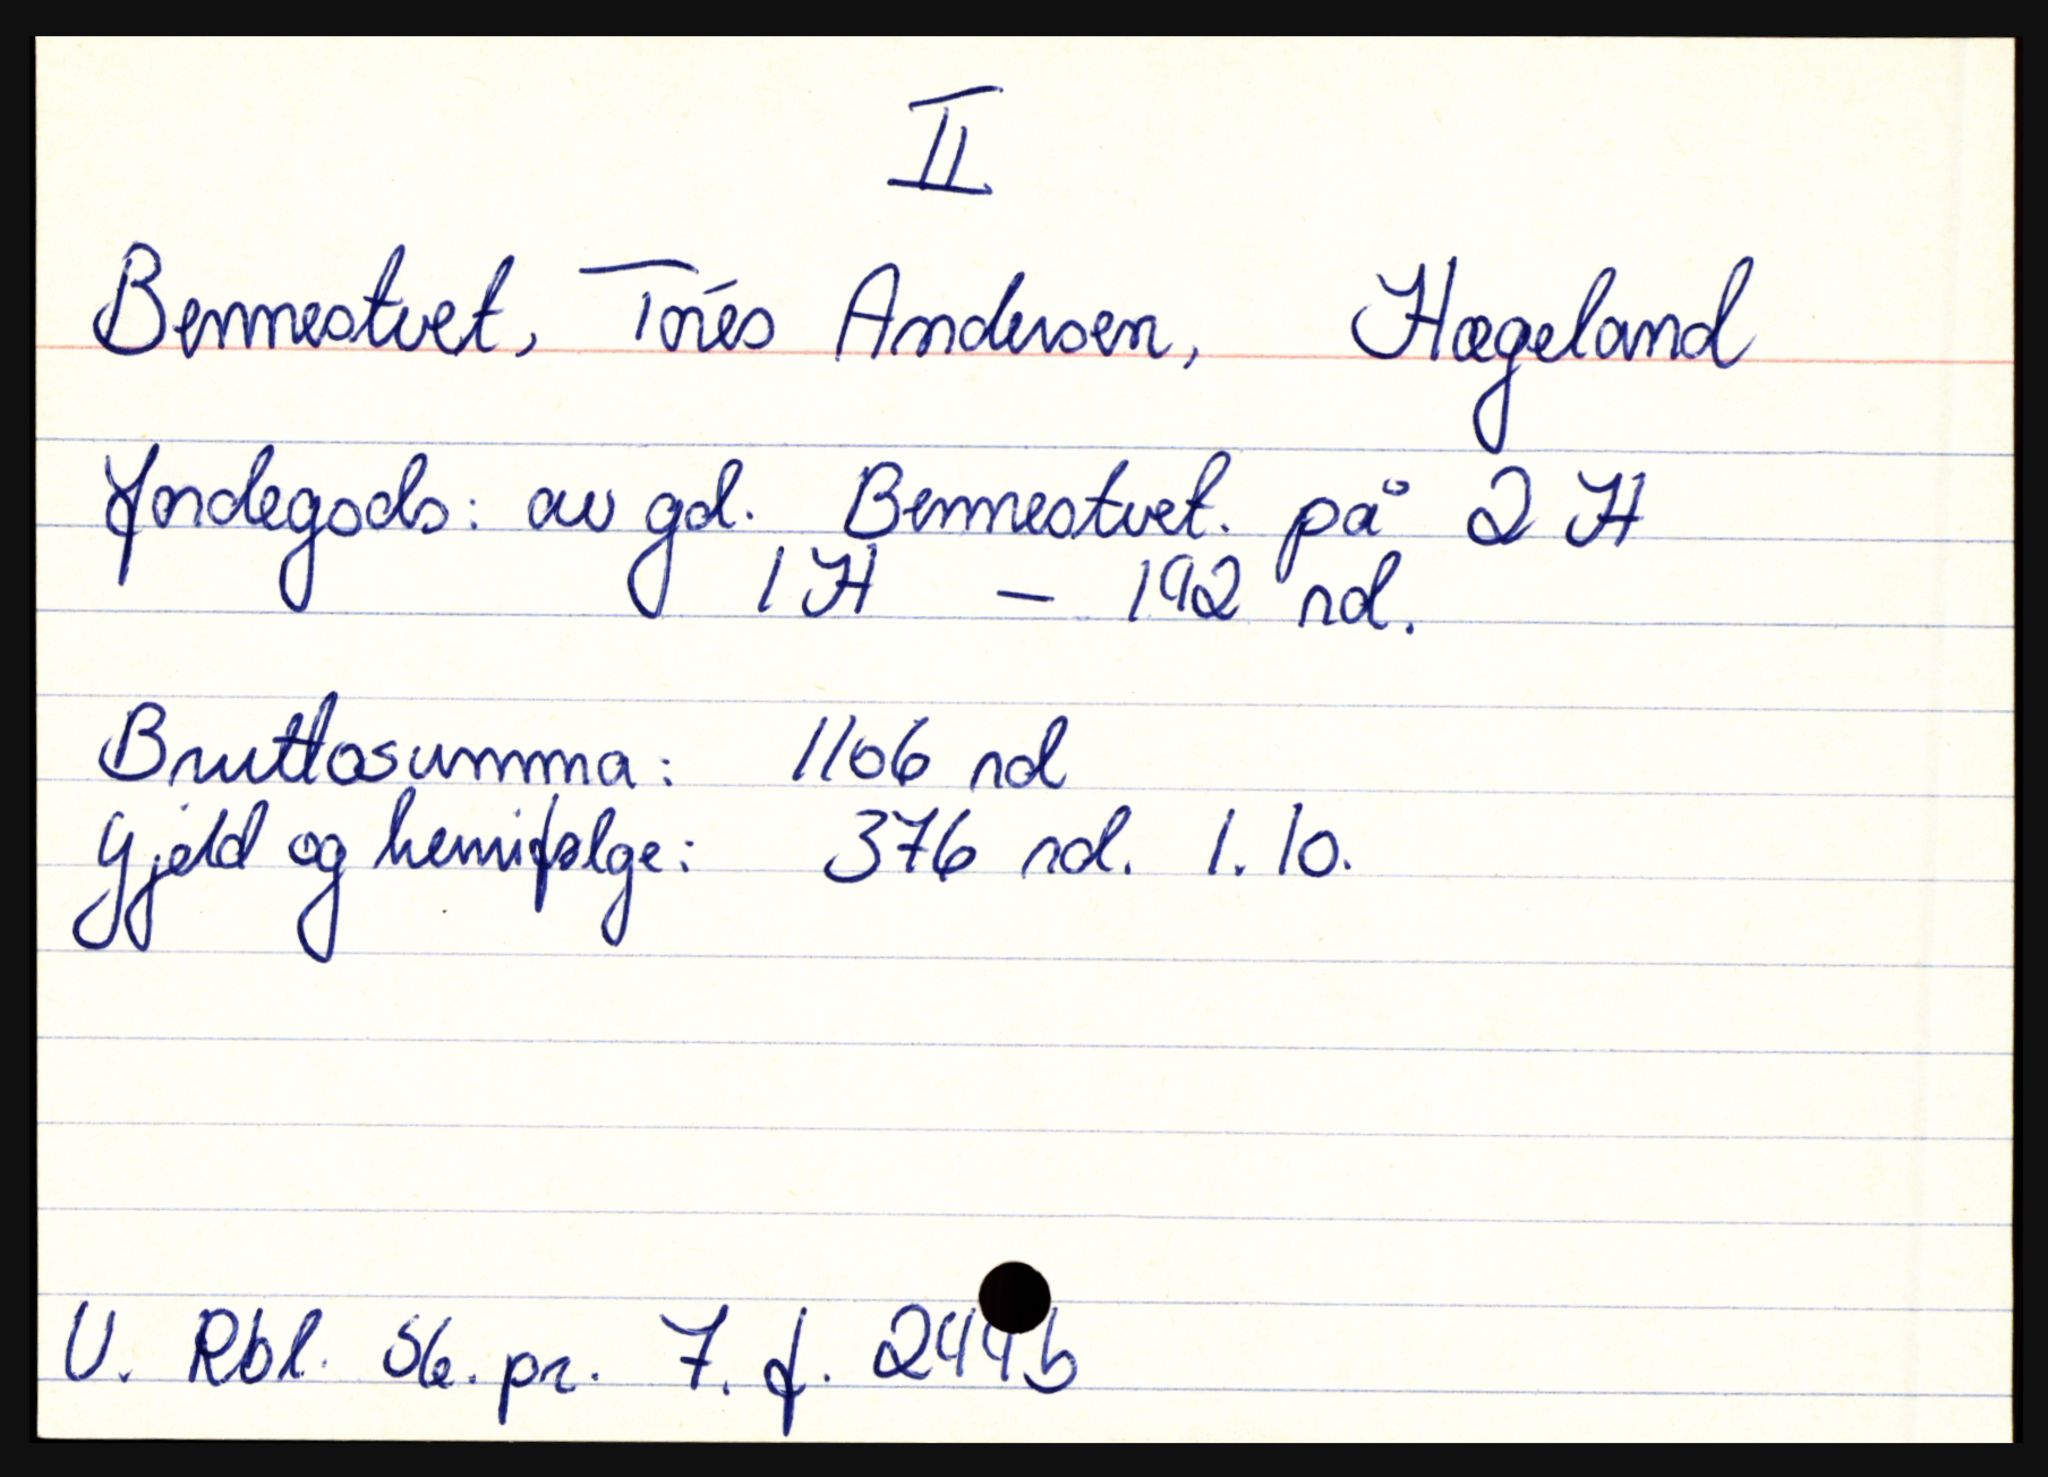 II
Bennestvet, Torés Andersen, Hægeland
Jordegods: av gd. Bennestvet. på 2 H
1 H — 192 rd.
Bruttosumma: 1106 rd
Gjeld og hemifølge: 376 rd. 1. 10.
V. Rbl. Sk. pr. 7. f. 244b